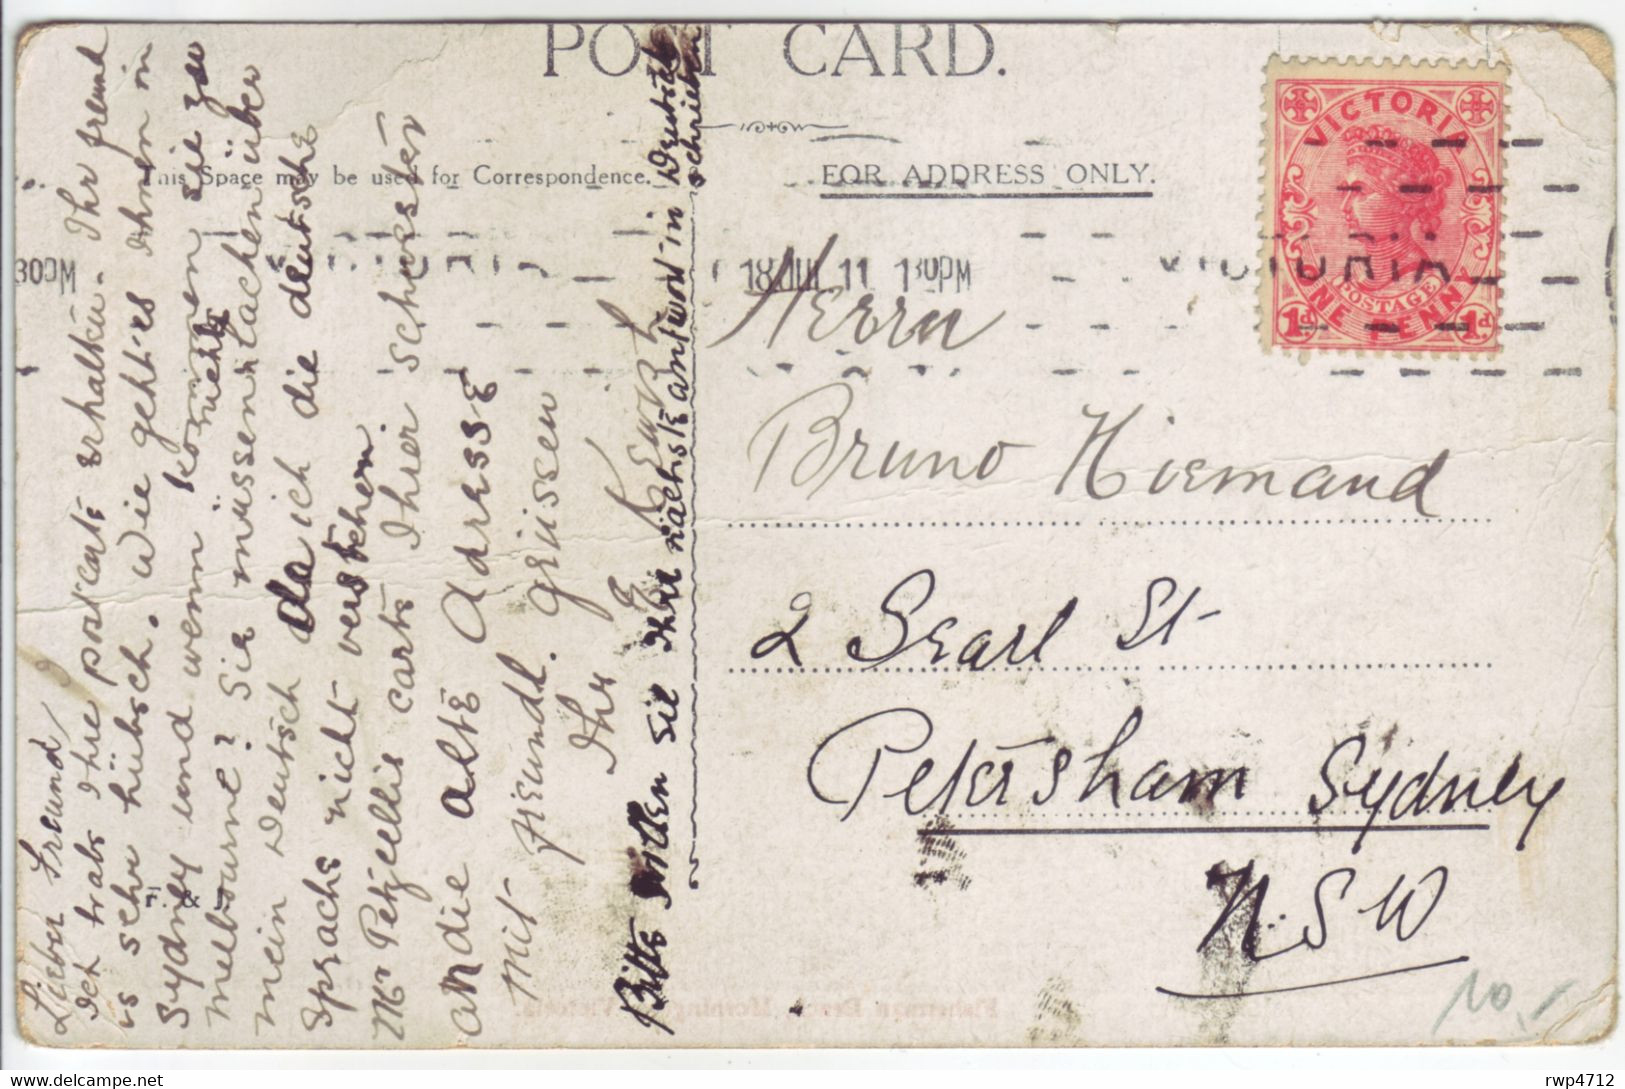 POST CARD.
This Space may be used for Correspondence.
FOR ADDRESS ONLY.
VICTORIA
POSTAGE
ONE PENNY
1d. 1d.
30PM
18 JUL 11 130PM
VICTORIA
Lieber Freund
Ich habe Ihre postcarte erhalten. Ihr freund
is sehr hübsch. Wie geht'es Ihnen in
Sydney und wenn kommen sie zu
Melbourne? Sie müssen lachen über
nicht
mein Deutsch da ich die deutsche
Sprache nicht verstehen
Mr Petjellis carte Ihrer schwester
an die alte Adresse
Mit freundl. grüssen
Ihr
E Kewish
Bitte Sie Ihre nächste antwort in Deutsch
schrieben
Herrn
Bruno Niemand
2 Searl St
Petersham Sydney
N.SW
F. &
Fisherman Beach, Mornington, Victoria.
10,-
rwp4712